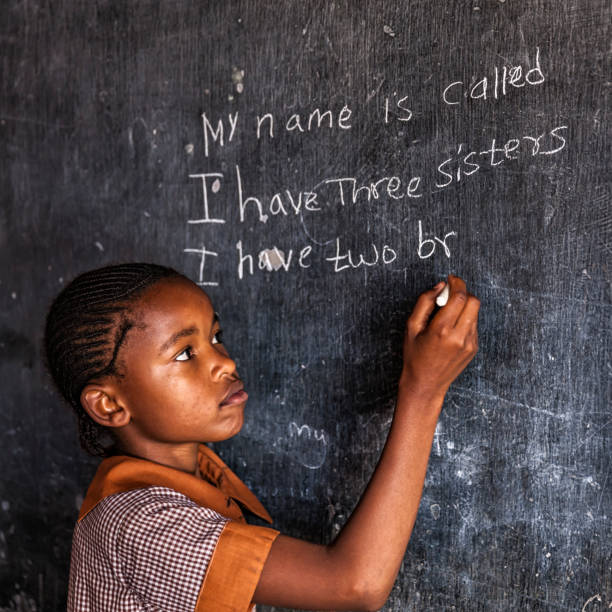 My name is called
I have Three sisters
I have two br
my